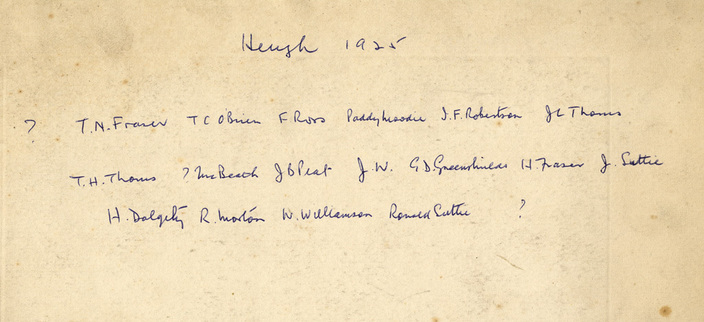 Heugh 1925
? T.N. Fraser T C O'Brien F Ross Paddy Moodie J.F. Robertson J L Thoms
T.H. Thoms ? McBeath J B Peat J.W. G D. Greenshields H. Fraser J. Suttie
H. Dalgety R. Morton W. Williamson Ronald Suttie ?